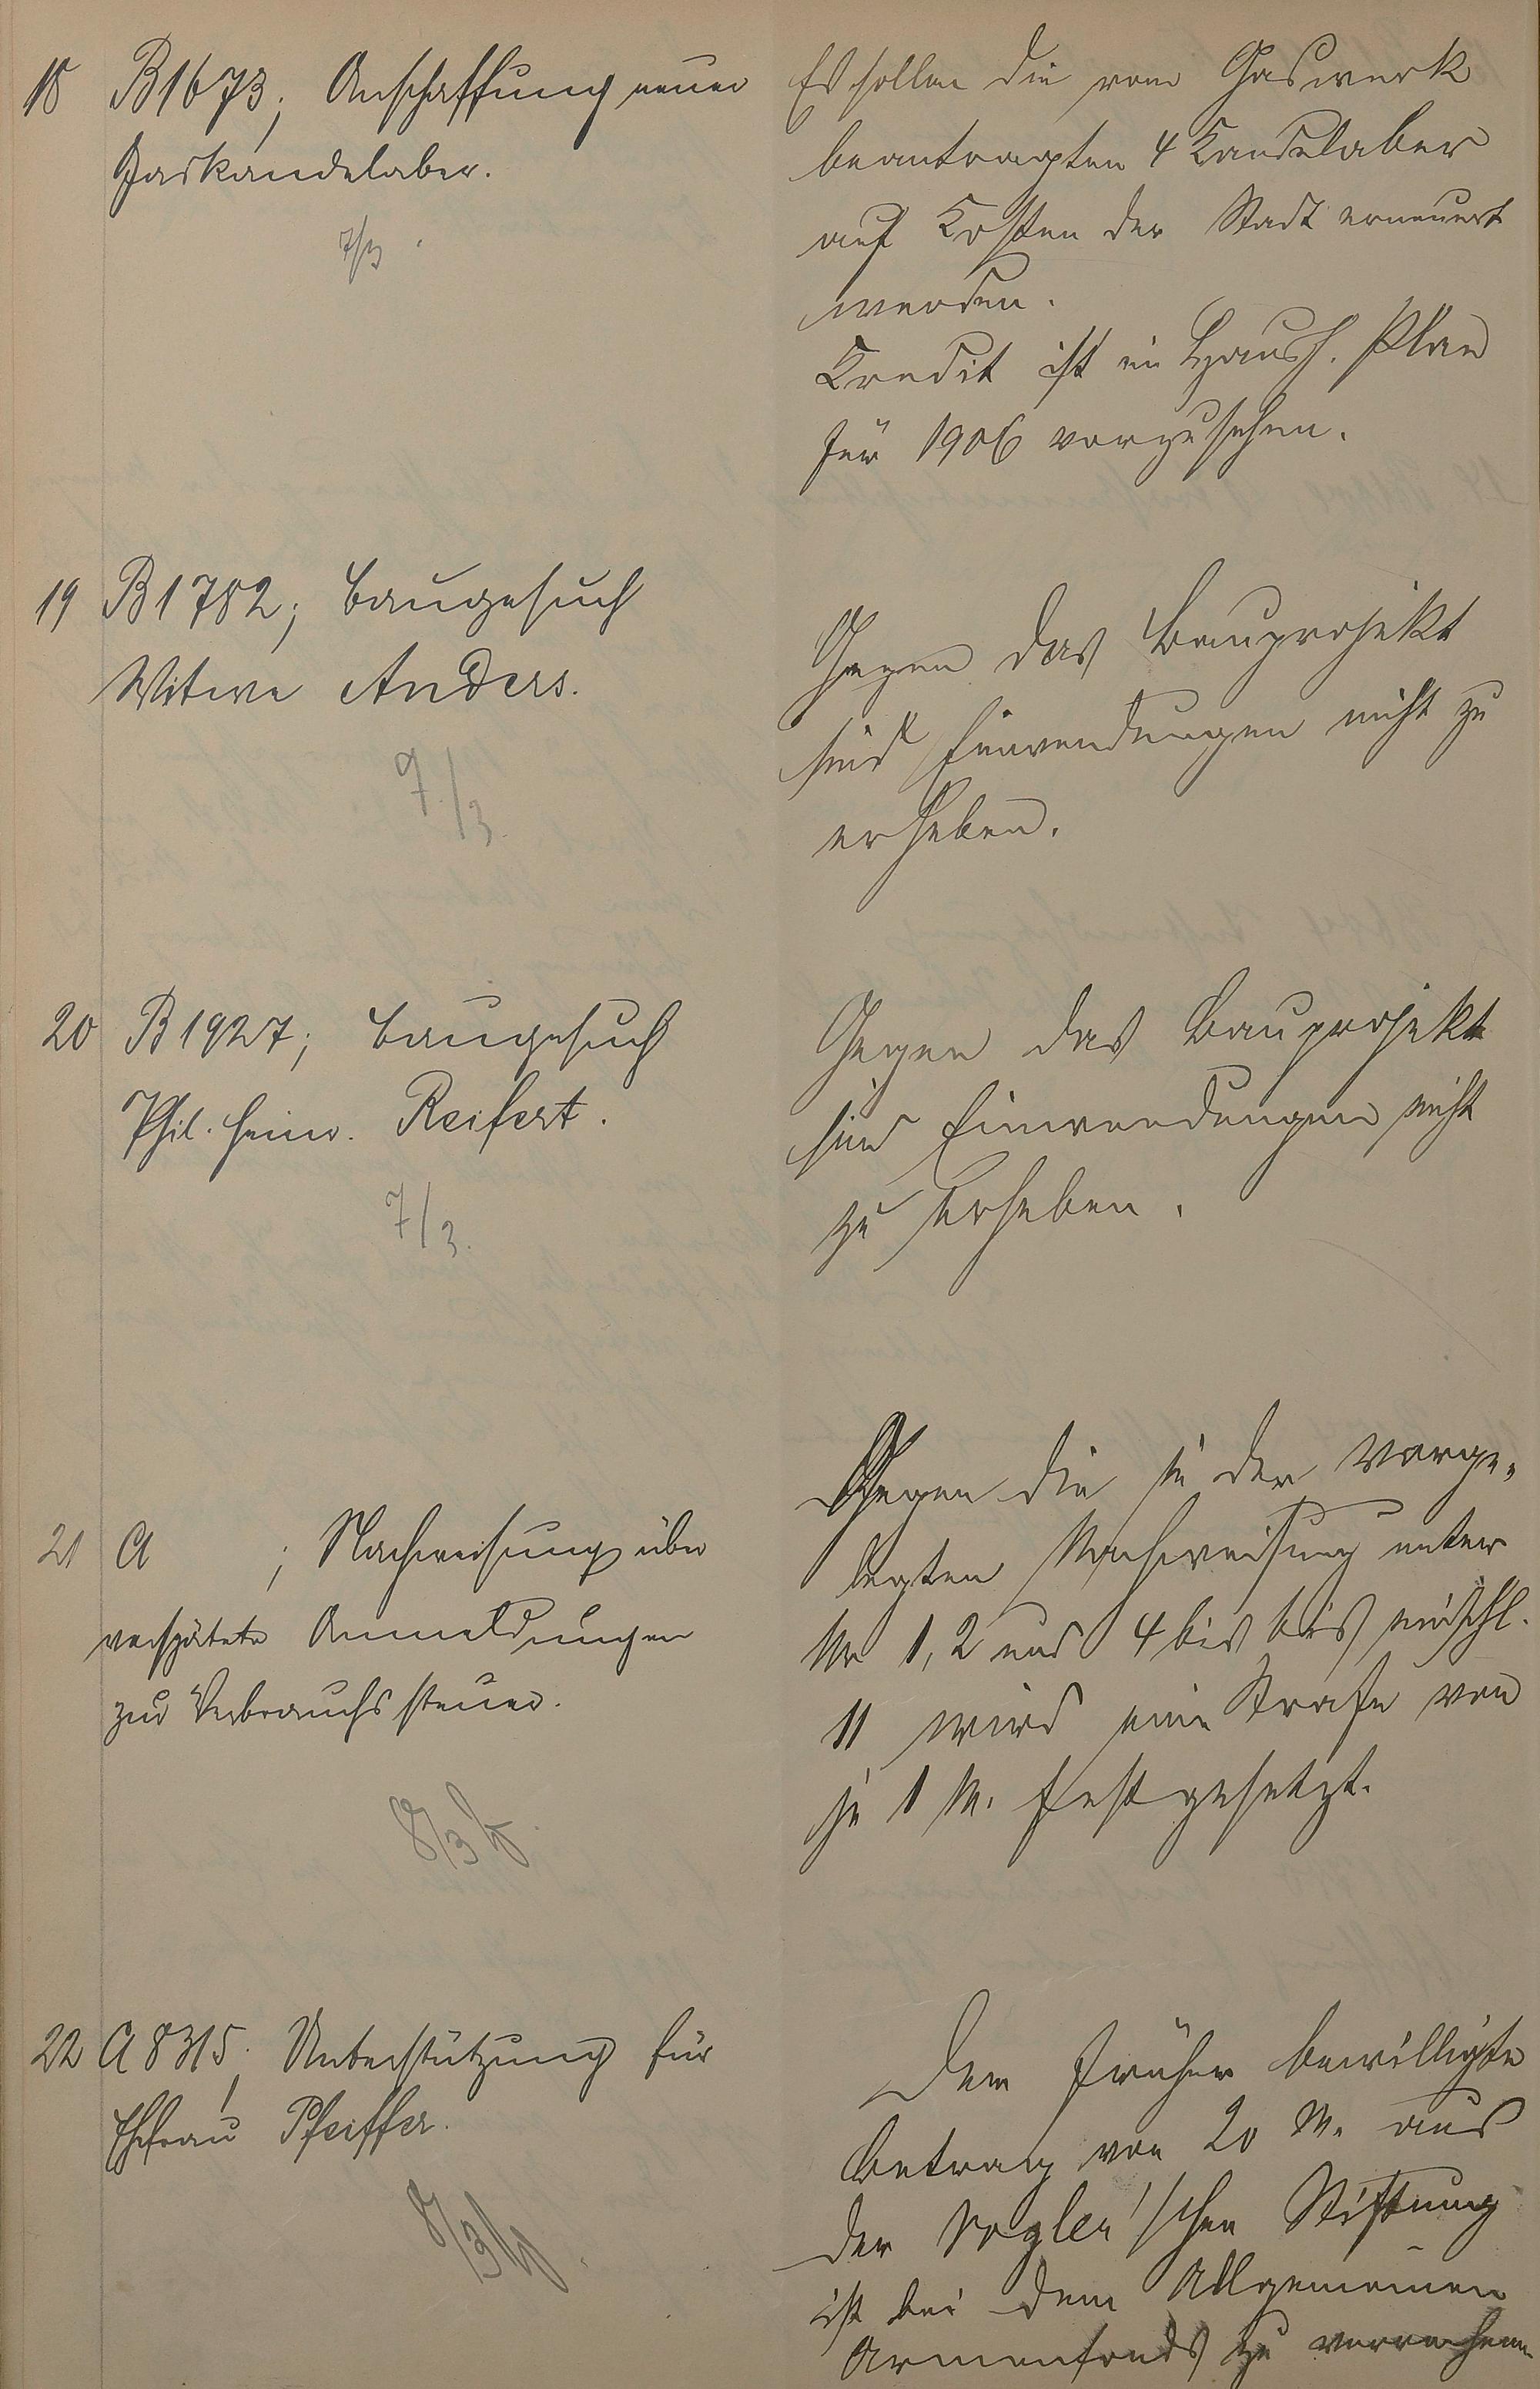 18 B1673; Anschaffung neuer
Gaskandelaber.
7/3.
Es sollen die vom Gaswerk
beantragten 4 Kandelaber
auf Kosten der Stadt erneuert
werden.
Kredit ist im Haush. Plan
für 1906 vorzusehen.
19 B1782; Baugesuch
Witwe Anders.
7./3.
Gegen das Bauprojekt
sind Einwendungen nicht zu
erheben.
20 B1927; Baugesuch
Phil. Heinr. Reifert.
7/3.
Gegen das Bauprojekt
sind Einwendungen nicht
zu erheben.
21 A ; Nachweisung über
verspätete Anmeldungen
zur Verbrauchssteuer.
8/3
Gegen die in der vorge-
legten Nachweisung unter
Nr 1, 2 und 4 bis bis einschl.
11 wird eine Strafe von
je 1 M. festgesetzt.
22 A 8315; Unterstützung für
Ehefrau Pfeiffer.
8/3
Der früher bewilligte
Betrag von 20 M. aus
der Vogler'schen Stiftung
ist bei dem Allgemeinen
Armenfonds zu verrechnen